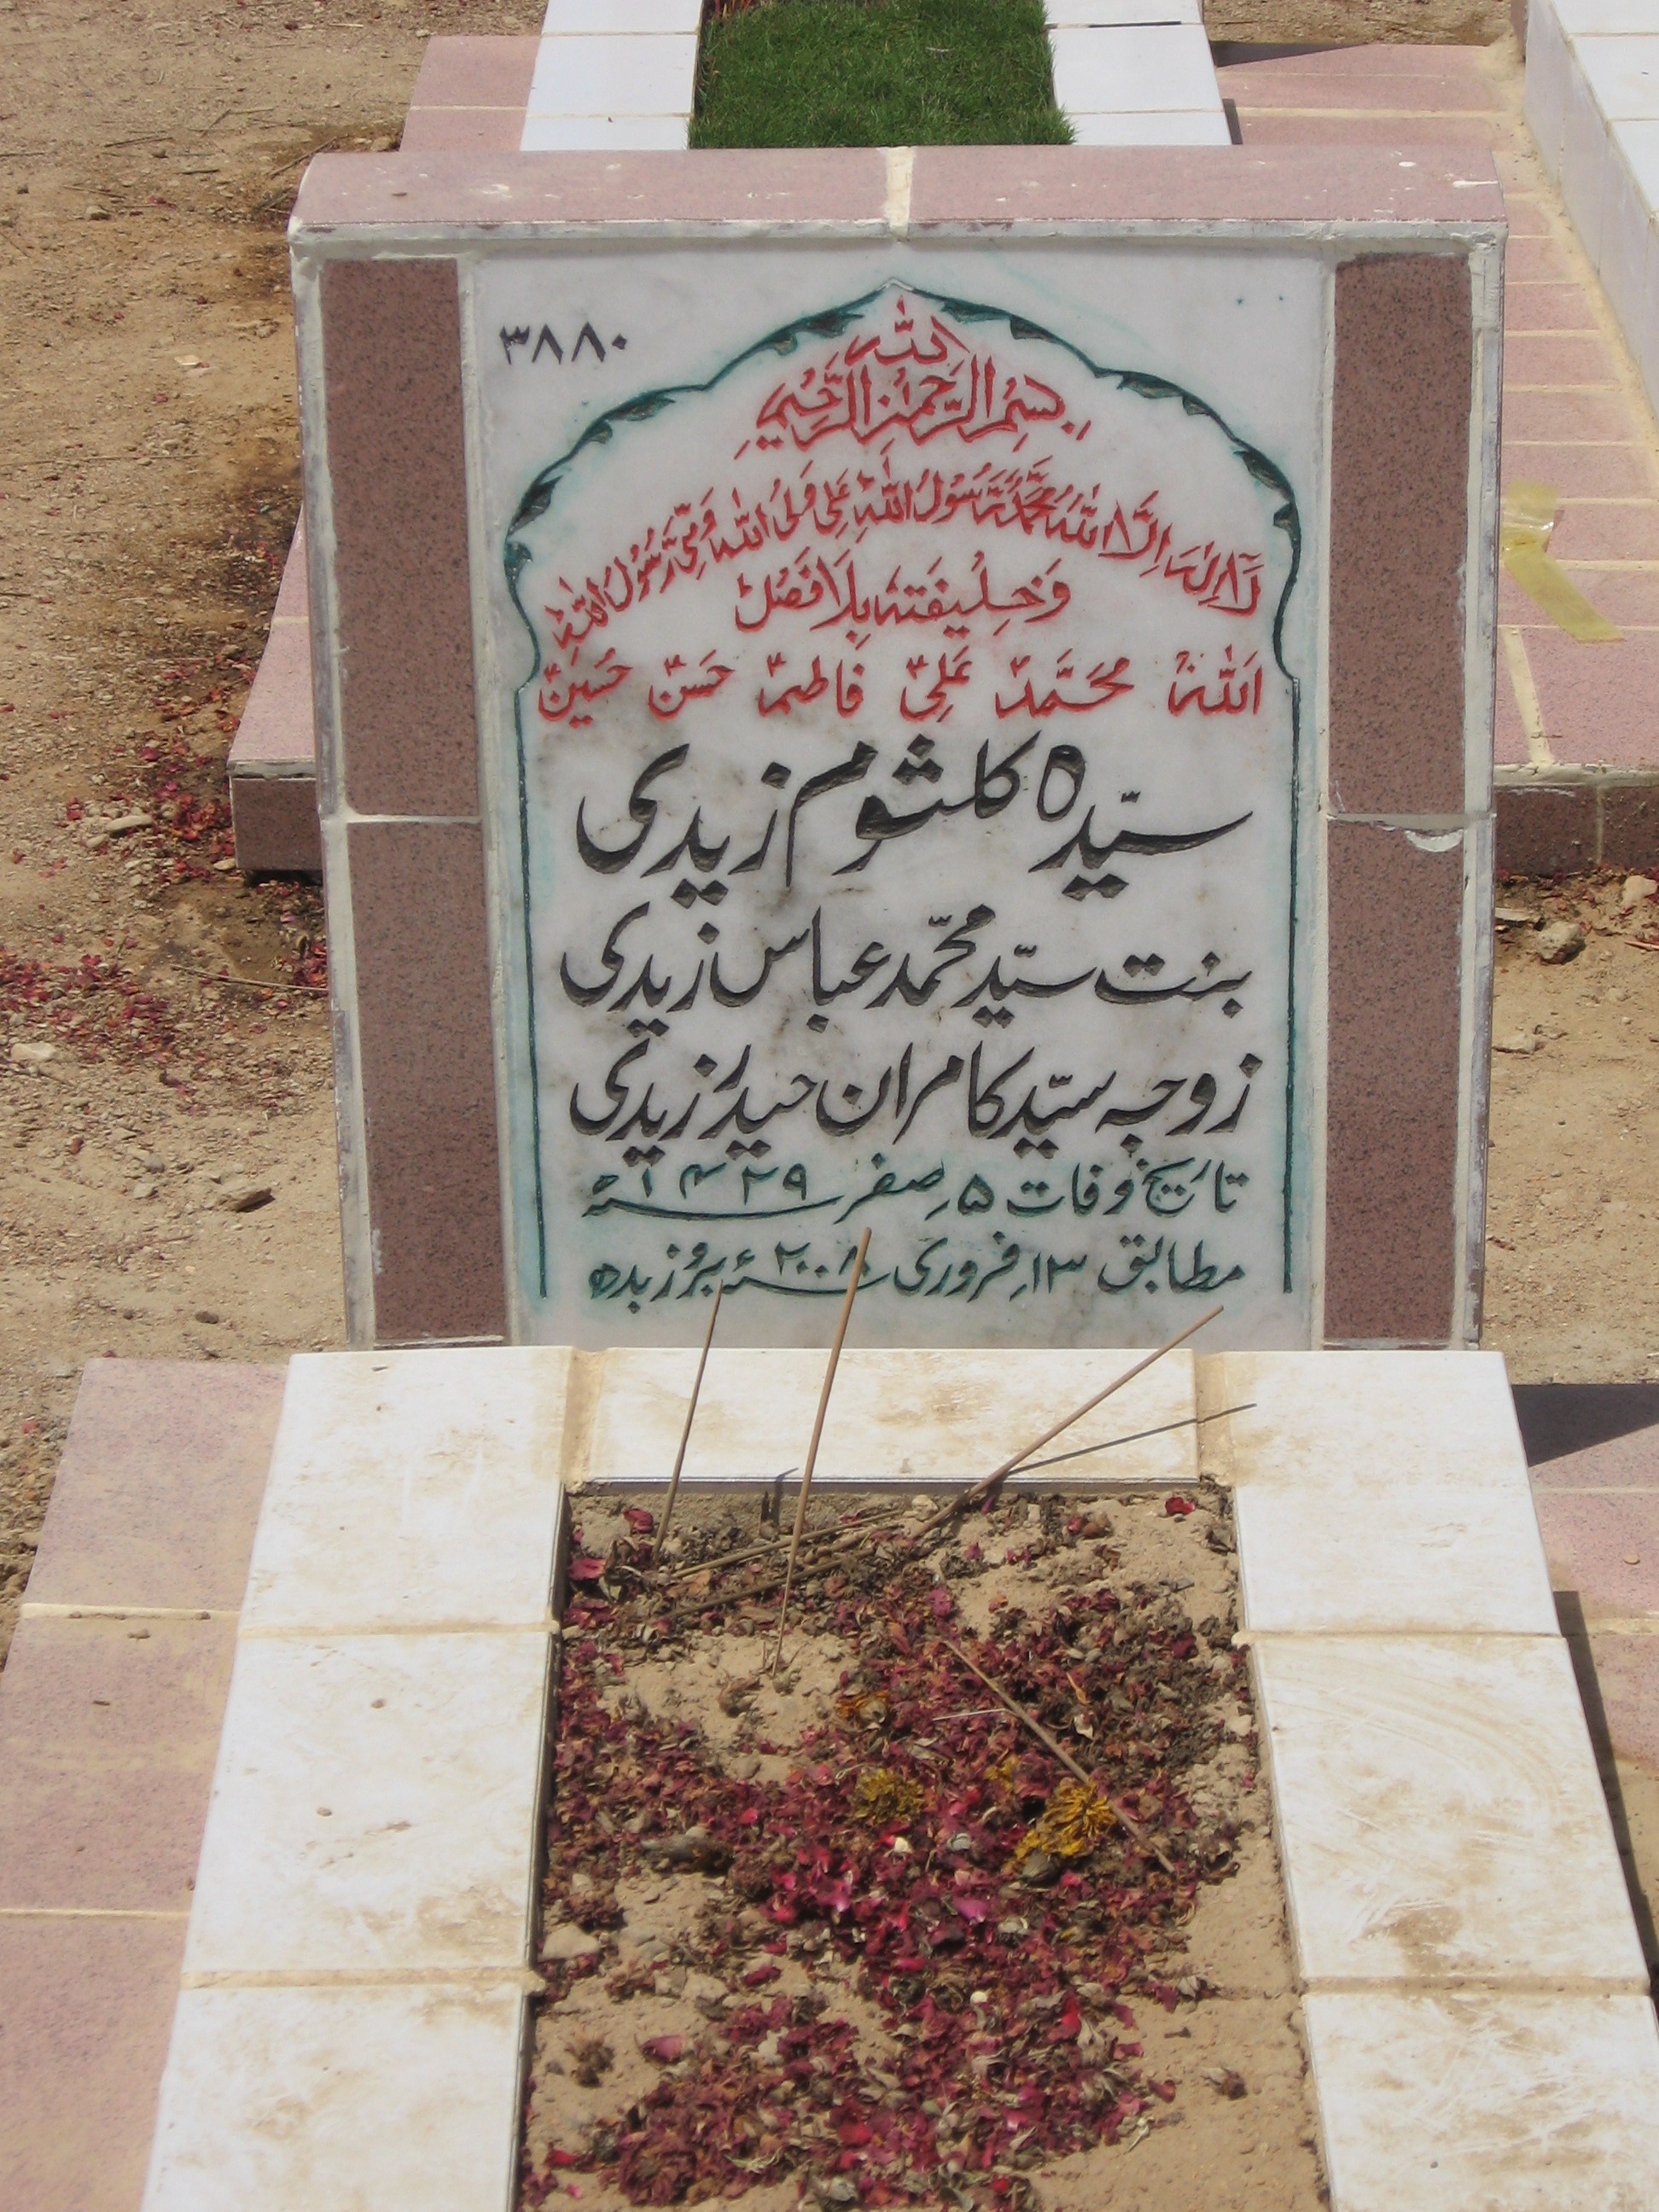 ۳۸۸۰
بِسْمِ اللهِ الرَّحْمٰنِ الرَّحِيْمِ
لَا اِلٰهَ اِلَّا اللهُ مُحَمَّدٌ رَّسُوْلُ اللهِ عَلِىٌّ وَلِىُّ اللهِ وَصِىُّ رَسُوْلُ اللهِ
وَخَلِيْفَتَهٗ بِلَا فَصْلْ
اَللهُ مُحَمَّدؐ عَلِیؑ فاطمہؑ حَسَنؑ حُسَینؑ
سیّدہ کلثوم زیدی
بنت سیّد محمّد عباس زیدی
زوجہ سیّد کامران حیدر زیدی
تاریخ وفات ۵ صفر ۱۴۲۹ھ
مطابق ۱۳ فروری ۲۰۰۸ء بروز بدھ